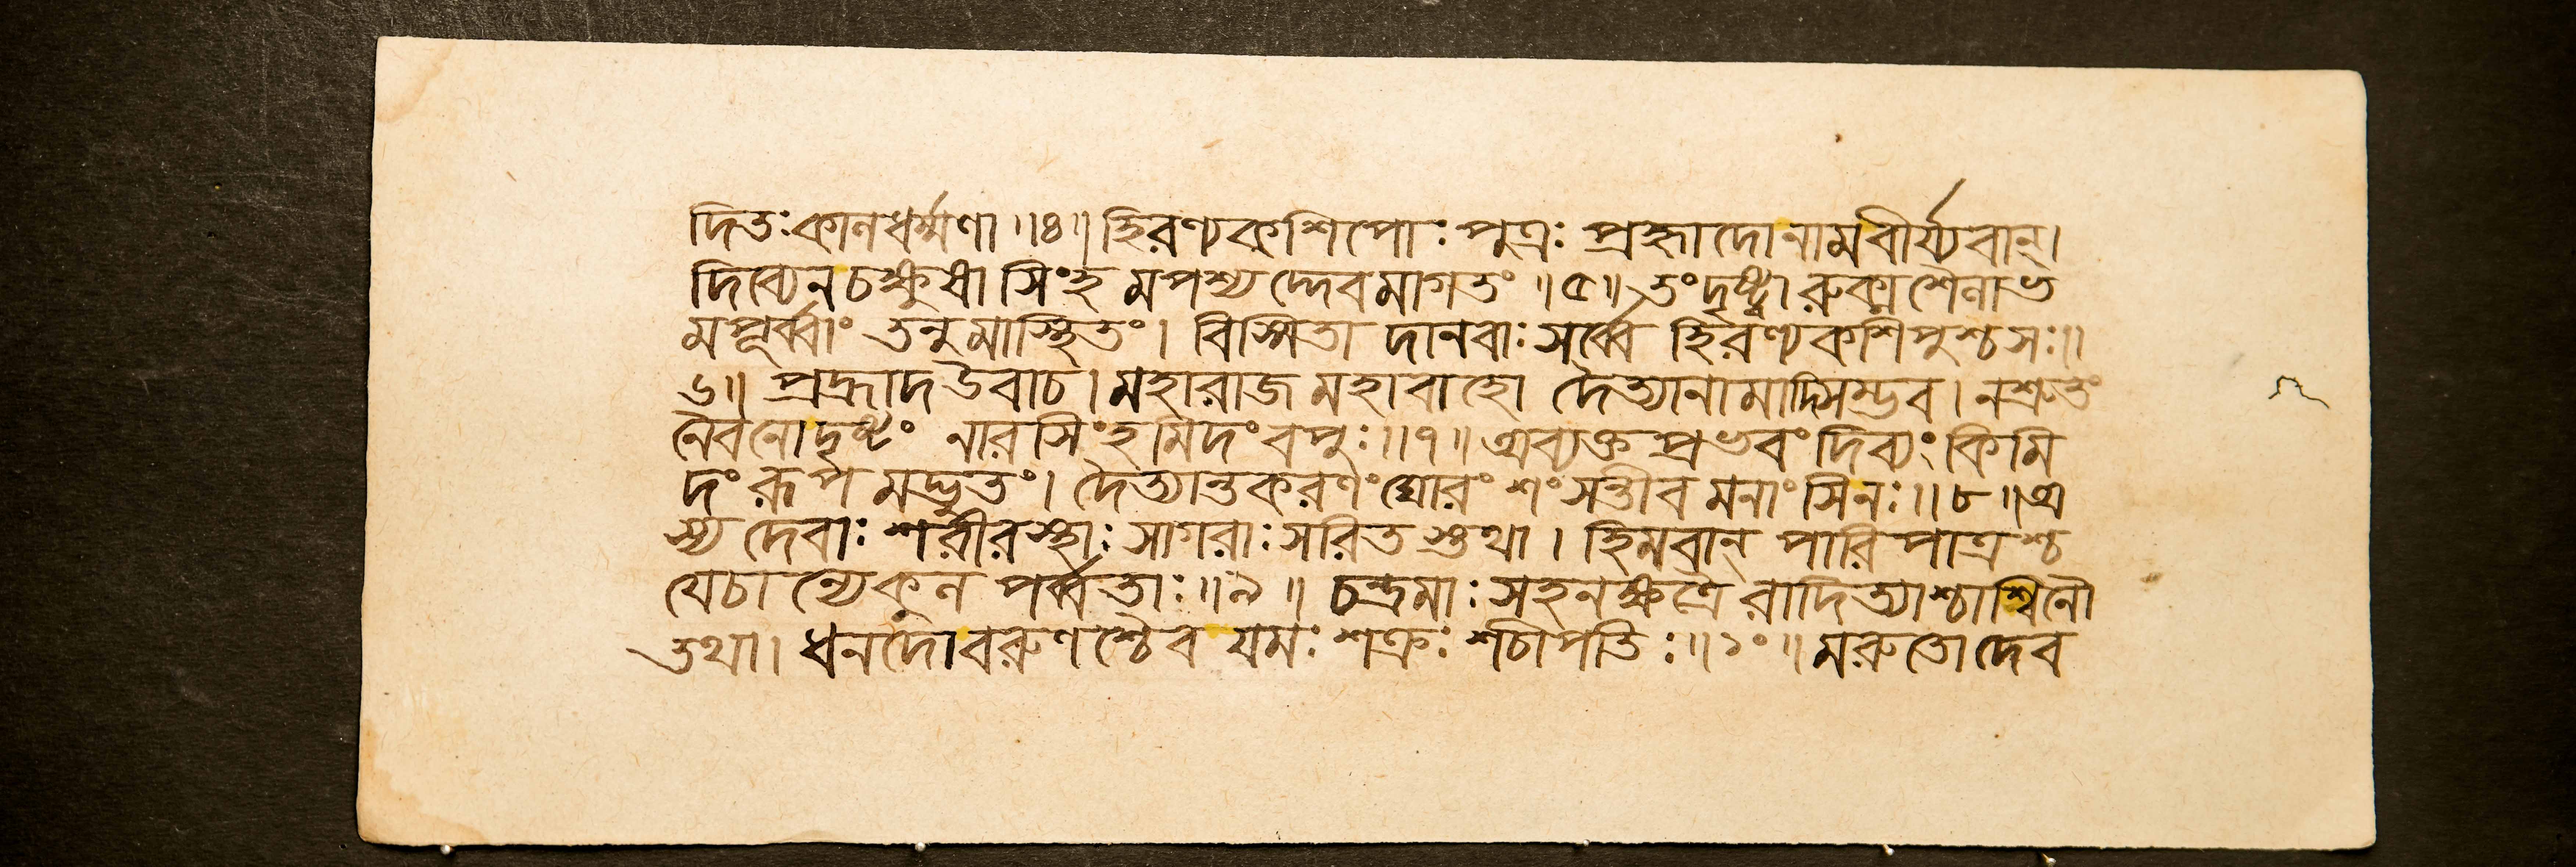 দিতঃকানধর্ম্মণা ॥৪॥ হিরণ্যকশিপোঃ পুত্রঃ প্রহ্লাদোনামবীর্য্যবান্।
দিব্যেনচক্ষুষা সিংহ মপশ্য দ্দেবমাগতং ॥৫॥ তংদৃষ্ট্বা রুক্মশৈনাভ
মপূর্ব্বাং তনুমাস্থিতং। বিস্মিতা দানবাঃ সর্ব্বে হিরণ্যকশিপুশ্চসঃ॥
৬॥ প্রহ্লাদউবাচ। মহারাজ মহাবাহো দৈত্যানামাদিসম্ভব। নশ্রুতং
নৈবনোদৃষ্টং নারসিংহমিদং বপুঃ॥৭॥ অব্যক্ত প্রভবং দিব্যং কিমি
দং রূপ মদ্ভুতং। দৈত্যান্তকরণং ঘোরং শংসন্তীব মনাংসিনঃ॥৮॥অ
স্য দেবাঃ শরীরস্থাঃ সাগরাঃ সরিত স্তথা। হিমবান্ পারিপাত্রশ্চ
যেচান্যেকুন পর্ব্বতাঃ॥৯॥ চন্দ্রমাঃ সহনক্ষত্রৈ রাদিত্যাশ্চাশ্বিনৌ
তথা। ধনদোবরুণশ্চৈব যমঃ শক্রঃ শচীপতিঃ॥১০॥ মরুতোদেব